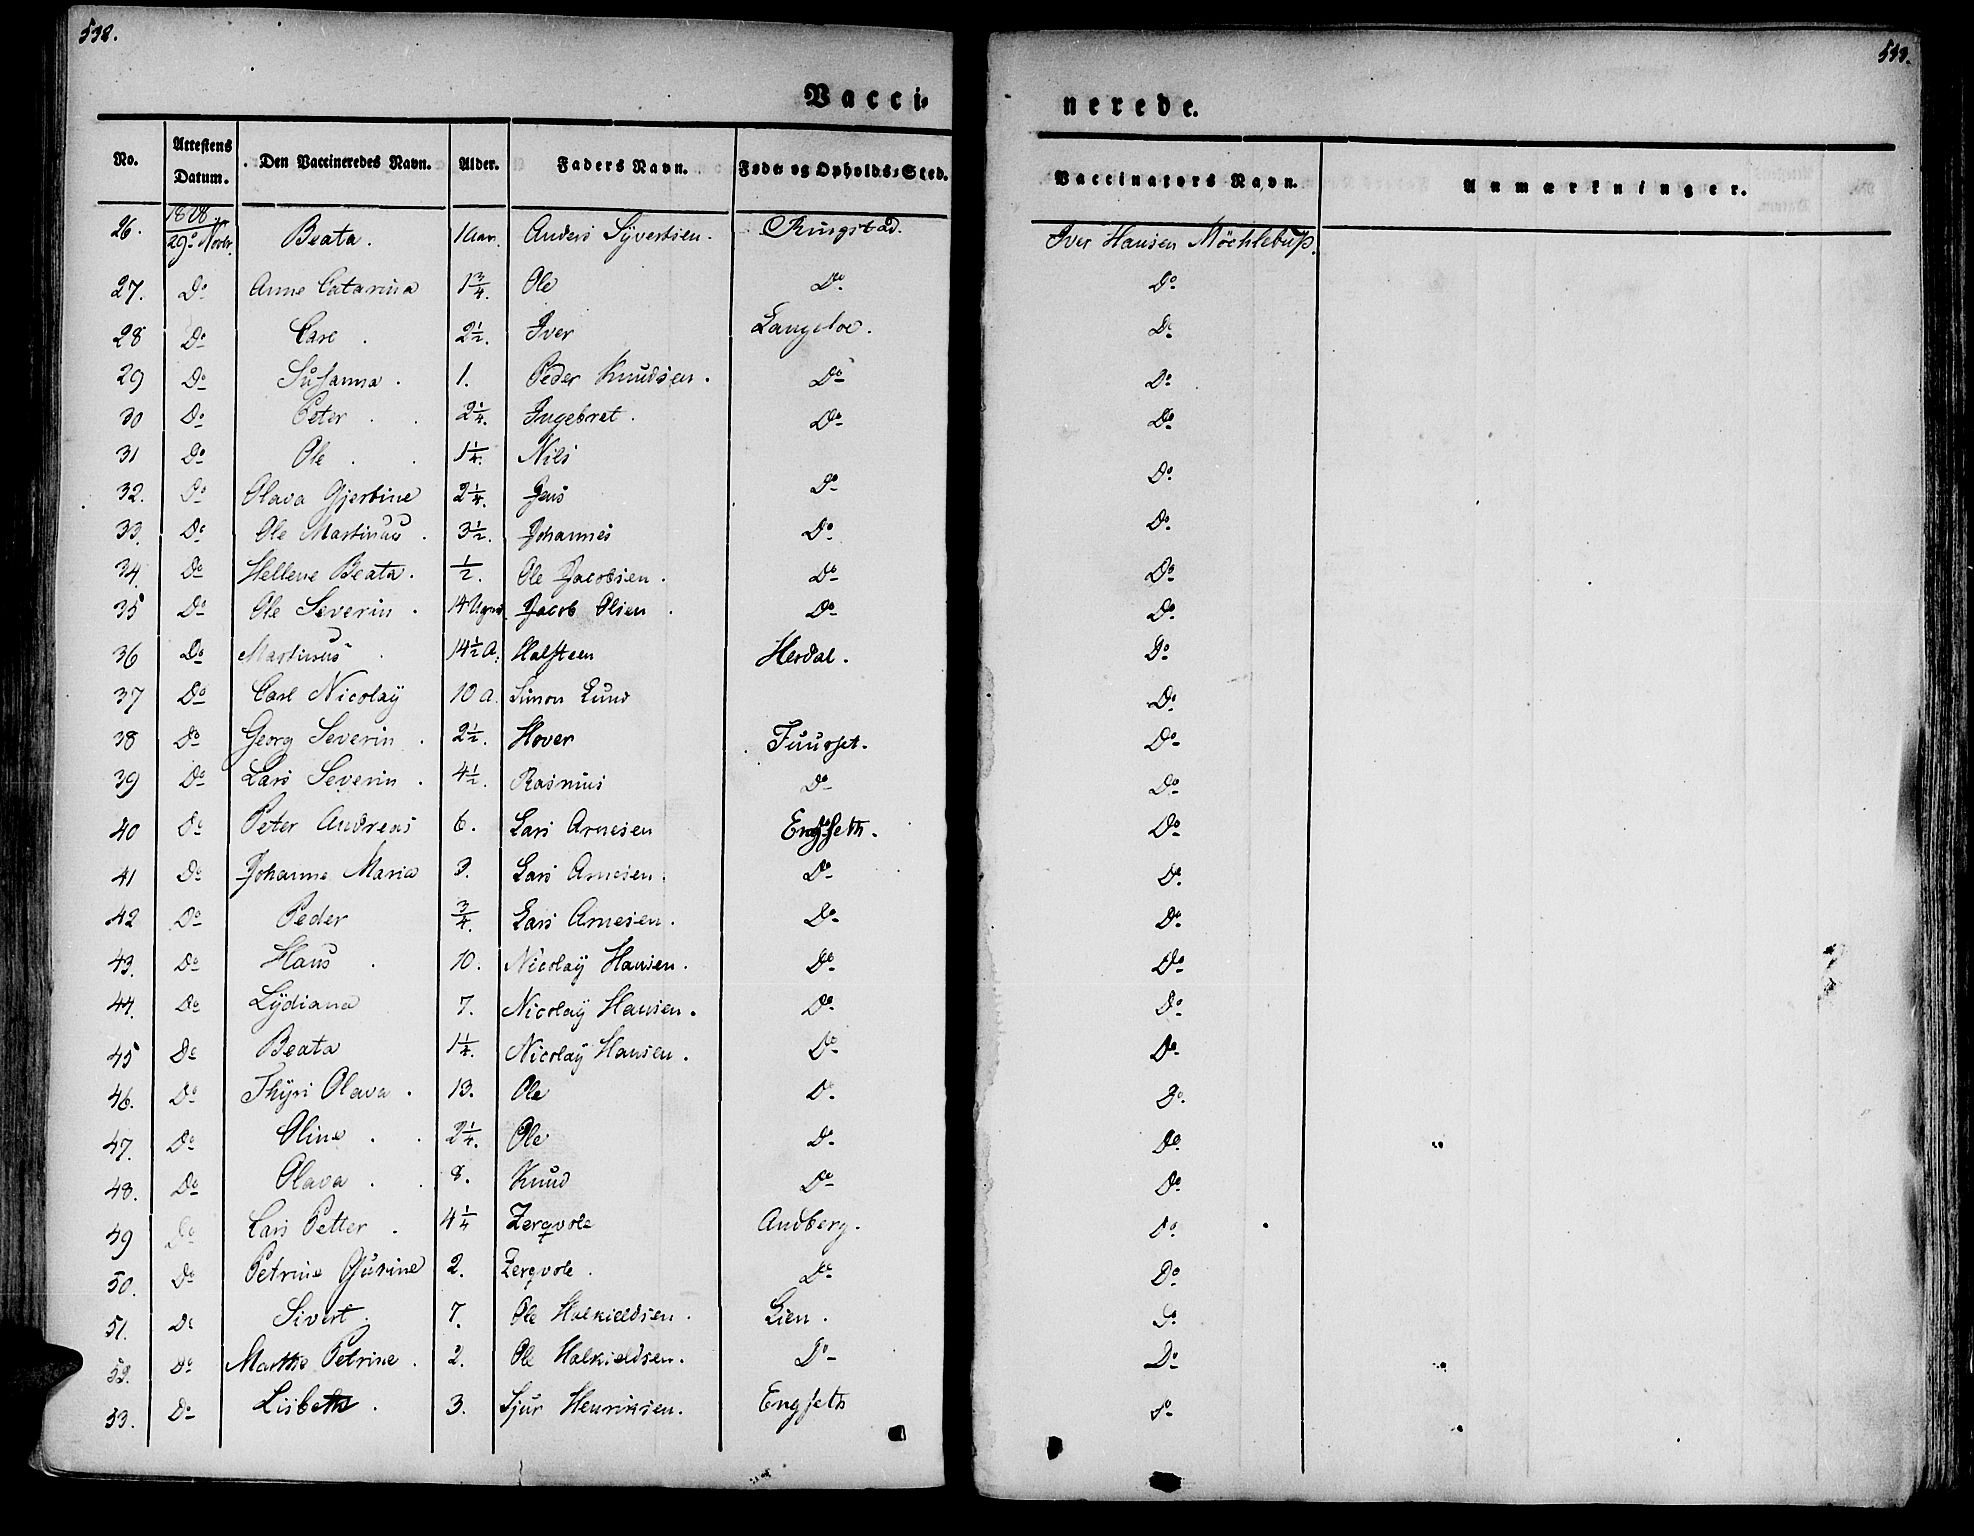 532.
533.
Vacci-
nerede.
No. Attestens Datum. Den Vaccineredes Navn. Alder. Faders Navn. Føde og Opholds-Sted. Vaccinators Navn. Anmærkninger.
26. 1828 29de Novbr. Beata. 1 Aar. Anders Sÿvertsen. Ringstad. Iver Hansen Möchlebup.
27. Do Anne Catarina 1 3/4. Ole Do Do
28 Do Carl. 2 1/2. Iver Langeloe. Do
29 Do Susanna. 1. Peder Knudsen. Do Do
30 Do Peter. 2 1/4. Ingebret. Do Do
31 Do Ole. 1 1/4. Nils
32. Do Olava Gjertine 2 1/4. Jens Do Do
33. Do Ole Martinus. 3 1/2. Johannes Do Do
34. Do Hellene Beata. 1/2. Ole Jacobsen. Do Do
35 Do Ole Severin. 14 Uger Jacob Olsen. Do Do
36 Do Martinus. 14 1/2 A. Halsteen Herdal. Do
37 Do Carl Nicolaÿ 10 A. Simon Lund Do
38 Do Georg Severin. 2 1/2. Hover Tuurset. Do
39 Do Lars Severin. 4 1/2. Rasmus Do Do
40 Do Peter Andreas 6. Lars Arnesen Engseth. Do
41 Do Johanne Maria 3. Lars Arnesen. Do Do
42 Do Peder 3/4. Lars Arnesen. Do Do
43. Do Hans. 10. Nicolaÿ Hansen. Do Do
44. Do Lÿdiana 7. Nicolaÿ Hansen. Do Do
45 Do Beata 1 1/4. Nicolaÿ Hansen. Do Do
46. Do Thÿri Olava. 13. Ole Do Do
47. Do Oline. 2 1/4. Ole Do Do
48. Do Olava. 8. Knud Do Do
49 Do Lars Petter. 4 1/4 Zergvole Andberg. Do
50. Do Petrine Gurine 2. Zergvole. Do Do
51. Do Sivert. 7. Ole Halkieldsen. Lien. Do
52. Do Marthe Petrine. 2. Ole Halkieldsen. Do Do
53. Do Lisbeth. 3. Sjur Henriksen. Engseth Do